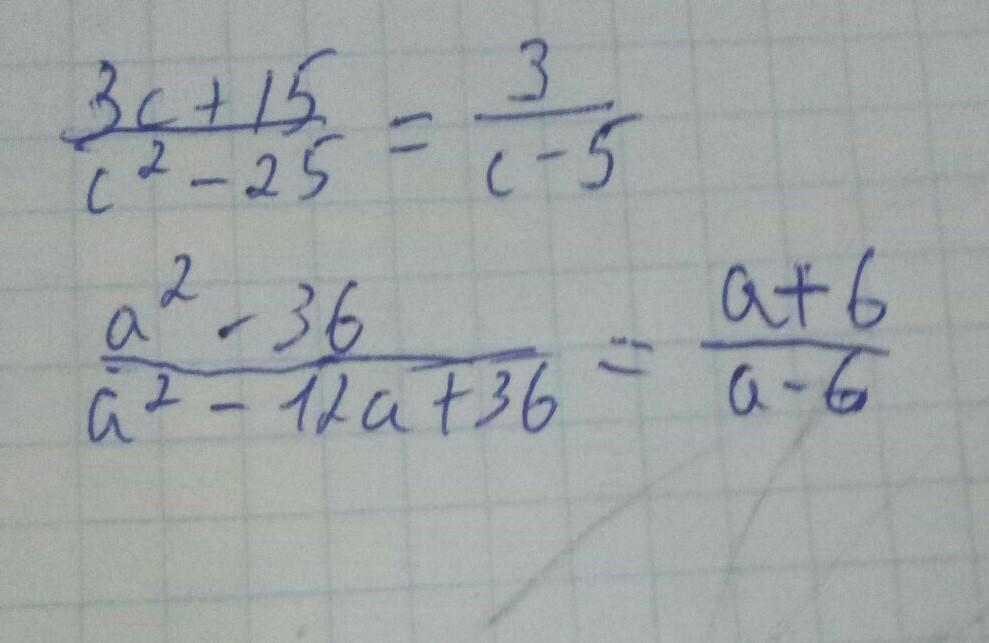 (3c+15)/(c²-25) = 3/(c-5)
(a²-36)/(a²-12a+36) = (a+6)/(a-6)